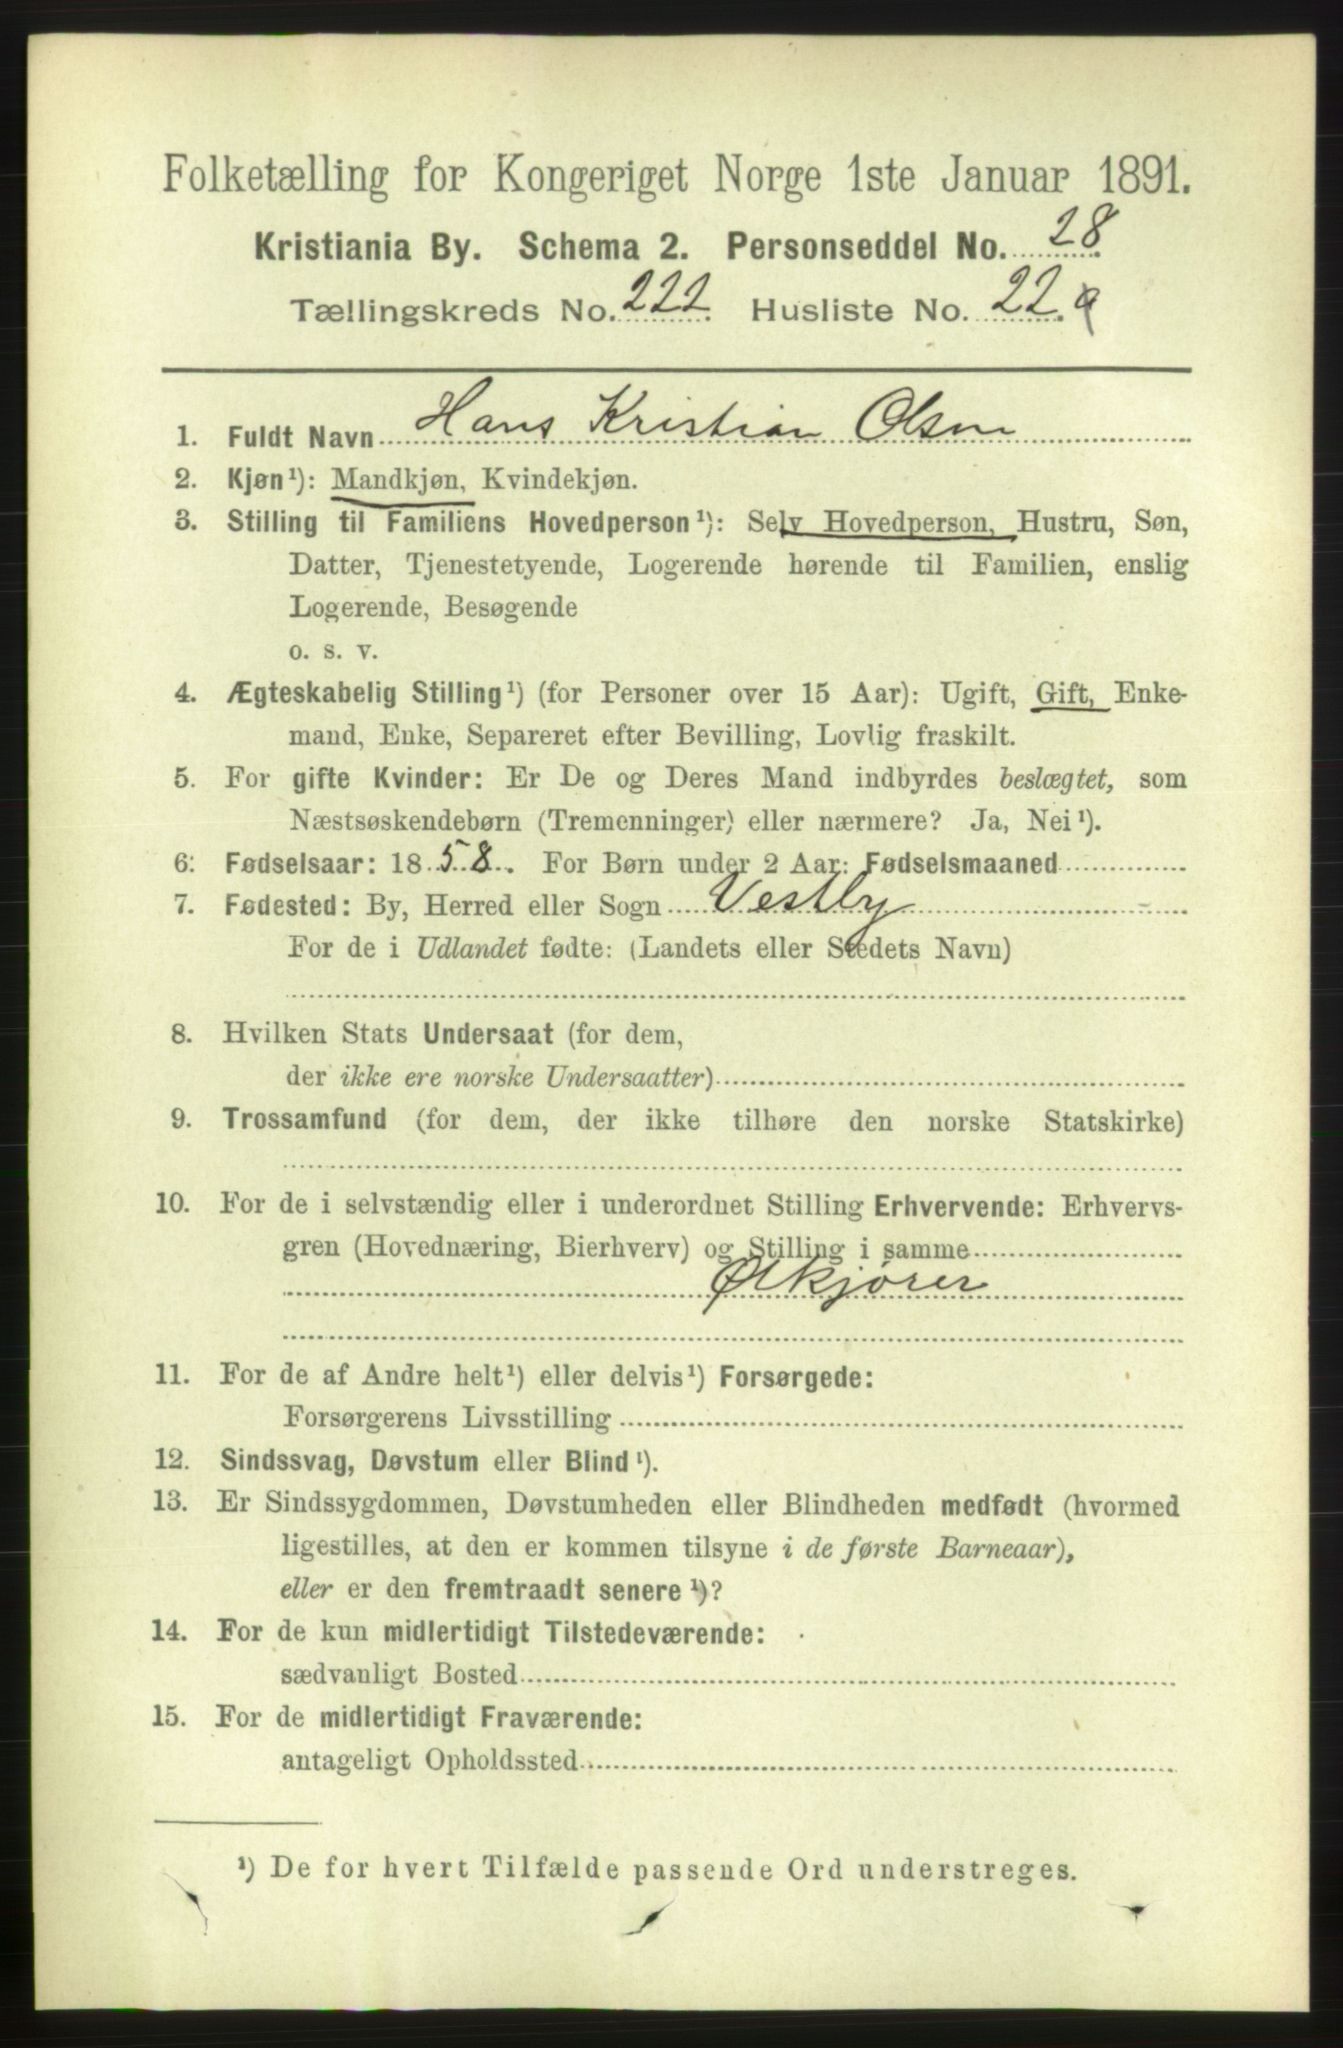 Folketælling for Kongeriget Norge 1ste Januar 1891.
Kristiania By. Schema 2. Personseddel No. 28
Tællingskreds No. 222. Husliste No. 22.a
1. Fuldt Navn Hans Kristian Olsen
2. Kjøn¹): Mandkjøn, Kvindekjøn.
3. Stilling til Familiens Hovedperson¹): Selv Hovedperson, Hustru, Søn,
Datter, Tjenestetyende, Logerende hørende til Familien, enslig
Logerende, Besøgende
o. s. v.
4. Ægteskabelig Stilling¹) (for Personer over 15 Aar): Ugift, Gift, Enke-
mand, Enke, Separeret efter Bevilling, Lovlig fraskilt.
5. For gifte Kvinder: Er De og Deres Mand indbyrdes beslægtet, som
Næstsøskendebørn (Tremenninger) eller nærmere? Ja, Nei¹).
6. Fødselsaar: 1858. For Børn under 2 Aar: Fødselsmaaned
7. Fødested: By, Herred eller Sogn Vestby
For de i Udlandet fødte: (Landets eller Stedets Navn)
8. Hvilken Stats Undersaat (for dem,
der ikke ere norske Undersaatter)
9. Trossamfund (for dem, der ikke tilhøre den norske Statskirke)
10. For de i selvstændig eller i underordnet Stilling Erhvervende: Erhvervs-
gren (Hovednæring, Bierhverv) og Stilling i samme
Ølkjører
11. For de af Andre helt¹) eller delvis¹) Forsørgede:
Forsørgerens Livsstilling
12. Sindssvag, Døvstum eller Blind¹).
13. Er Sindssygdommen, Døvstumheden eller Blindheden medfødt (hvormed
ligestilles, at den er kommen tilsyne i de første Barneaar),
eller er den fremtraadt senere¹)?
14. For de kun midlertidigt Tilstedeværende:
sædvanligt Bosted
15. For de midlertidigt Fraværende:
antageligt Opholdssted
¹) De for hvert Tilfælde passende Ord understreges.